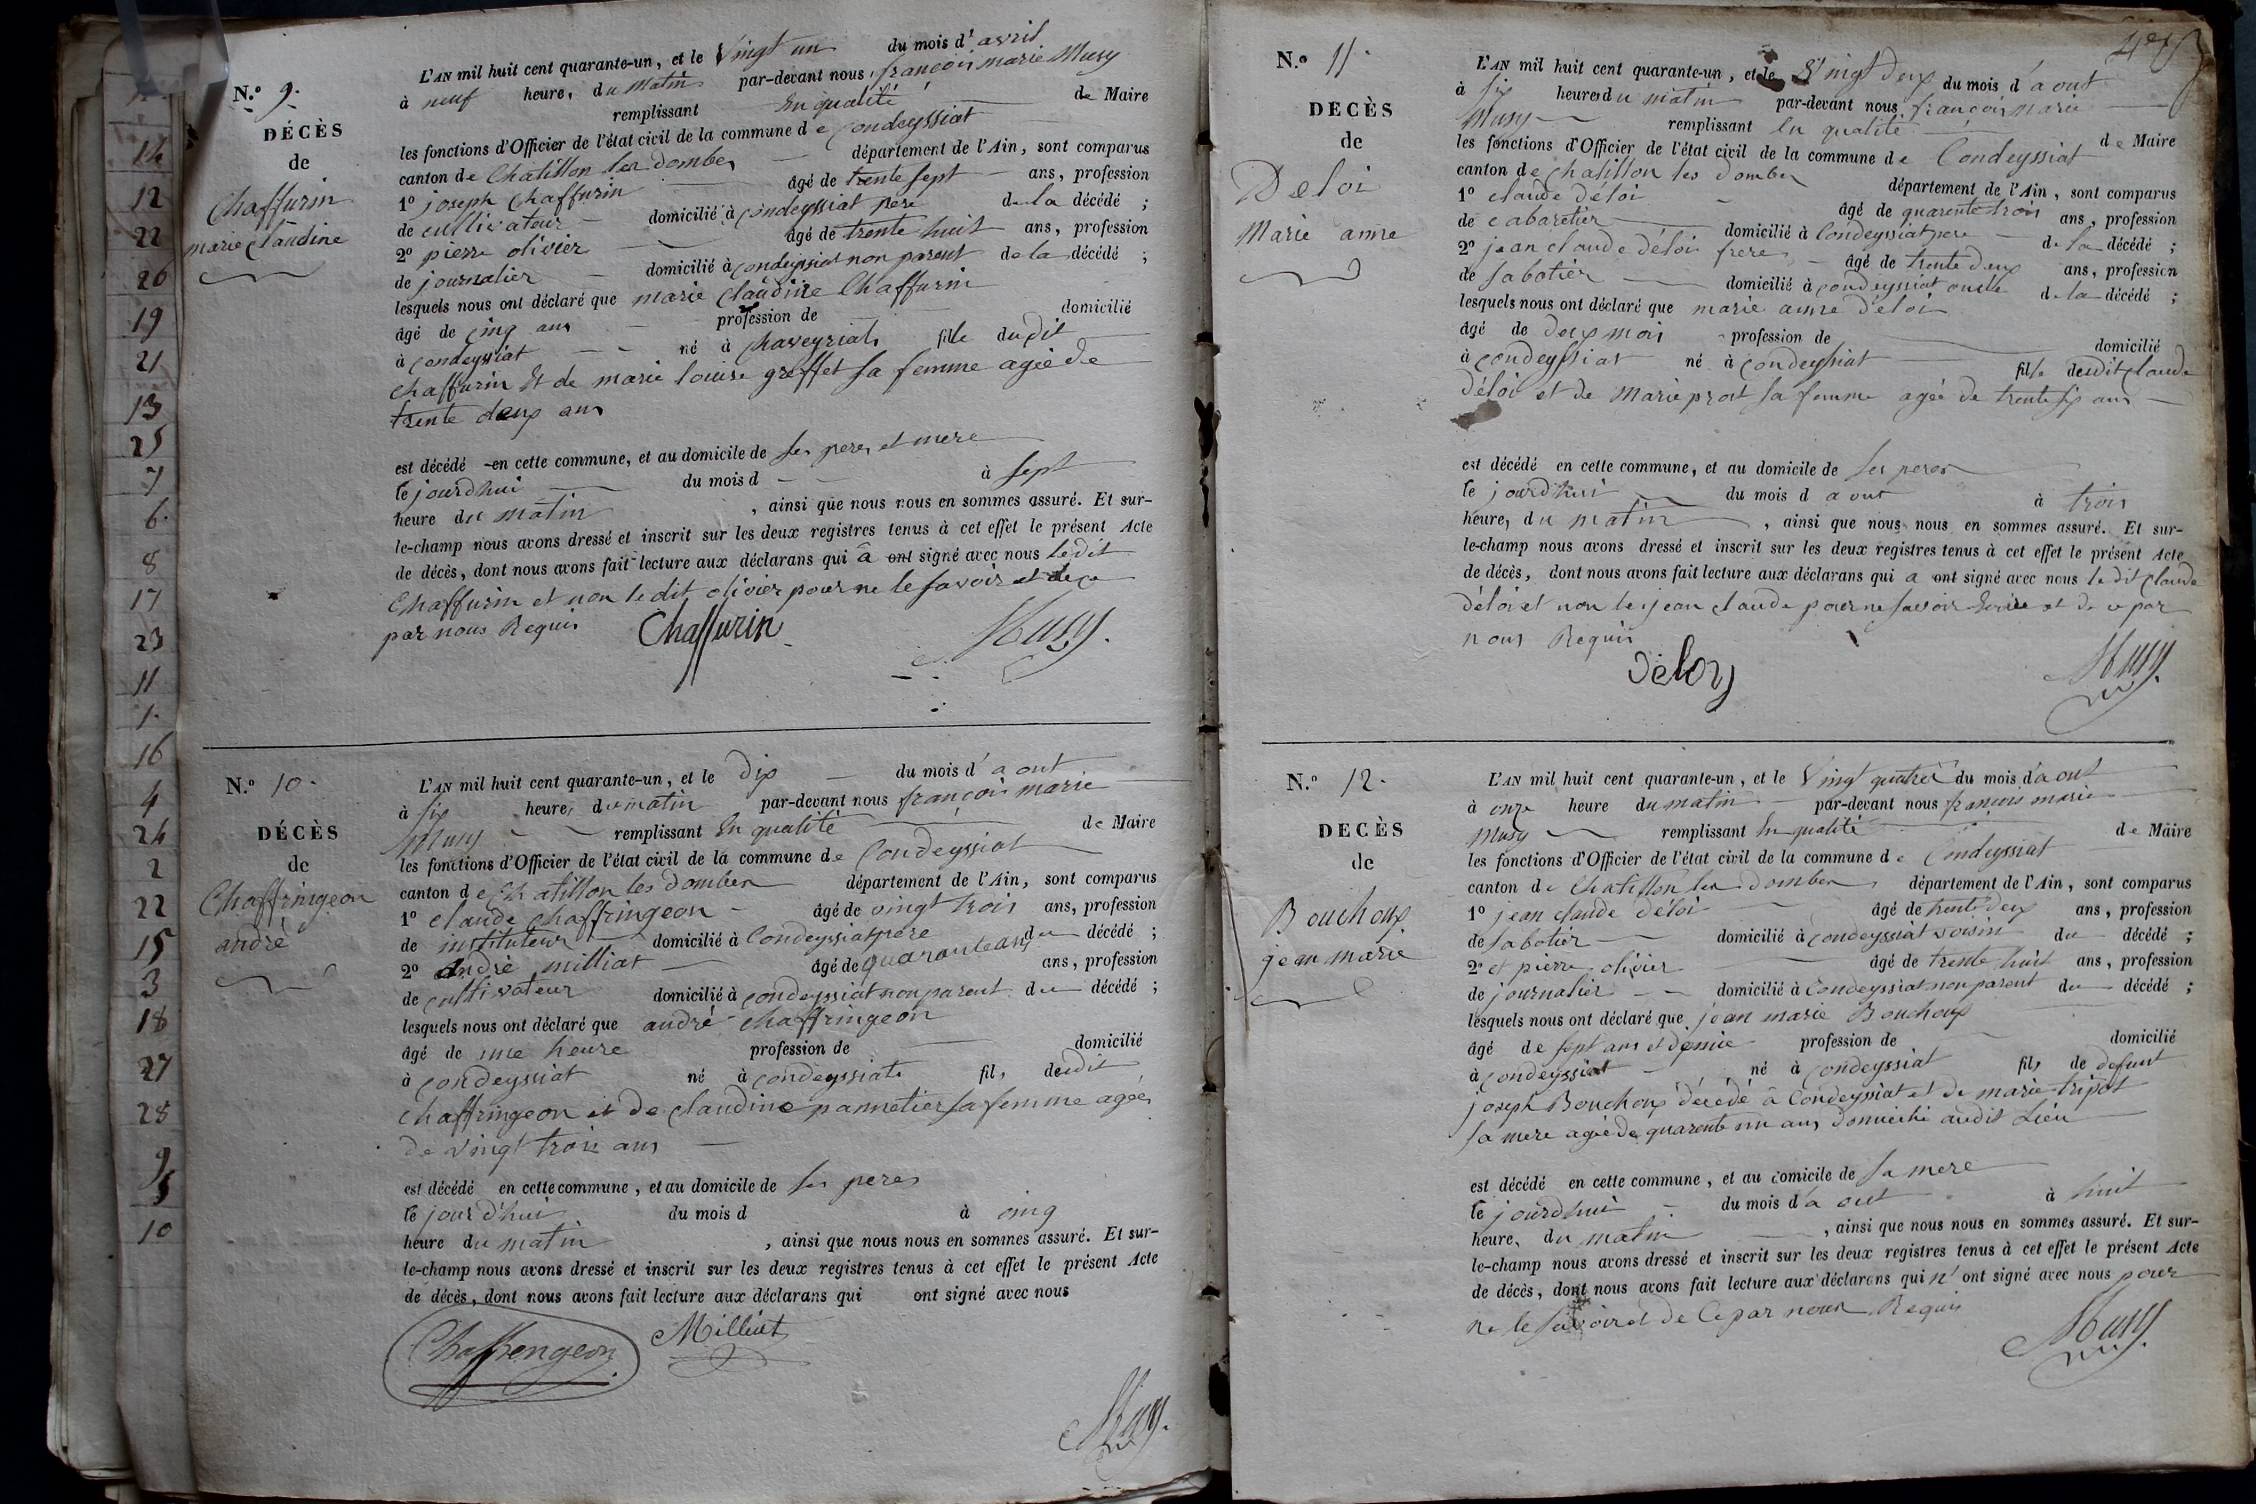 14
12
22
20
19
21
13
25
7
6.
8
17
23
11
1.
16
4
24
2
22
15
3
18
27
28
9
5
10
N.º 9.
DÉCÈS
de
Chaffurin
marie Claudine
L'AN mil huit cent quarante-un, et le Vingt un du mois d'avril
à neuf heures du matin par-devant nous, françois marie Musy
remplissant En qualité de Maire
les fonctions d'Officier de l'état civil de la commune de Condeyssiat
canton de Chatillon les dombes département de l'Ain, sont comparus
1º joseph Chaffurin âgé de trente sept ans, profession
de cultivateur domicilié à Condeyssiat pere de la décédé ;
2º pierre olivier âgé de trente huit ans, profession
de journalier domicilié à condeyssiat non parent de la décédé ;
lesquels nous ont déclaré que marie Claudine Chaffurin
âgé de cinq ans profession de domicilié
à condeyssiat né à chaveyriat fille dudit
Chaffurin Et de marie louise greffet sa femme agée de
trente deux ans
est décédé en cette commune, et au domicile de ses peres et mere
le jourdhui du mois d à sept
heure du matin , ainsi que nous nous en sommes assuré. Et sur-
le-champ nous avons dressé et inscrit sur les deux registres tenus à cet effet le présent Acte
de décès, dont nous avons fait lecture aux déclarans qui a ont signé avec nous ledit
Chaffurin et non le dit olivier pour ne le savoir et de ce
par nous Requis Chaffurin Musy.
N.º 10.
DÉCÈS
de
Chaffringeon
andré
L'AN mil huit cent quarante-un, et le dix du mois d'aout
à six heures du matin par-devant nous françois marie
Musy remplissant En qualité de Maire
les fonctions d'Officier de l'état civil de la commune de Condeyssiat
canton de Chatillon les dombes département de l'Ain, sont comparus
1º claude chaffringeon âgé de vingt trois ans, profession
de instituteur domicilié à Condeyssiat pere du décédé ;
2º andré milliat âgé de quarante ans ans, profession
de cultivateur domicilié à condeyssiat non parent du décédé ;
lesquels nous ont déclaré que andré chaffringeon
âgé de une heure profession de domicilié
à condeyssiat né à condeyssiat fils dudit
chaffringeon et de claudine pannetier sa femme agée
de vingt trois ans
est décédé en cette commune, et au domicile de ses peres
le jour d'hui du mois d à cinq
heure du matin , ainsi que nous nous en sommes assuré. Et sur-
le-champ nous avons dressé et inscrit sur les deux registres tenus à cet effet le présent Acte
de décès, dont nous avons fait lecture aux déclarans qui ont signé avec nous
Chaffrengeon Milliat
Musy.
N.º 11.
DECÈS
de
Deloi
Marie anne
L'AN mil huit cent quarante-un, et le Vingt deux du mois d'aout
à six heures du matin par-devant nous françois marie
Musy remplissant En qualité de Maire
les fonctions d'Officier de l'état civil de la commune de Condeyssiat
canton de chatillon les dombes département de l'Ain, sont comparus
1º claude déloi âgé de quarente trois ans, profession
de cabaretier domicilié à Condeyssiat pere de la décédé ;
2º jean claude déloi frere âgé de trente deux ans, profession
de sabotier domicilié à condeyssiat oncle de la décédé ;
lesquels nous ont déclaré que marie anne déloi
âgé de deux mois profession de domicilié
à condeyssiat né à condeyssiat fille dudit claude
déloi et de Marie prost sa femme agée de trente six ans
est décédé en cette commune, et au domicile de ses peres
le jourd'hui du mois d aout à trois
heure, du matin , ainsi que nous nous en sommes assuré. Et sur-
le-champ nous avons dressé et inscrit sur les deux registres tenus à cet effet le présent Acte
de décès, dont nous avons fait lecture aux déclarans qui a ont signé avec nous le dit claude
déloi et non le jean claude pour ne savoir Ecrire et de ce par
nous Requis
Déloy Musy.
N.º 12.
DECÈS
de
Bouchoux
jean marie
L'AN mil huit cent quarante-un, et le Vingt quatre du mois d'aout
à onze heure du matin par-devant nous françois marie
Musy remplissant En qualité de Maire
les fonctions d'Officier de l'état civil de la commune de Condeyssiat
canton de Chatillon les dombes département de l'Ain, sont comparus
1º jean claude déloi âgé de trente deux ans, profession
de sabotier domicilié à condeyssiat voisin du décédé ;
2º et pierre olivier âgé de trente huit ans, profession
de journalier domicilié à Condeyssiat non parent du décédé ;
lesquels nous ont déclaré que jean marie Bouchoux
âgé de sept ans et demie profession de domicilié
à condeyssiat né à condeyssiat fils de defunt
joseph Bouchoux décédé à Condeyssiat et de marie tripot
sa mere agée de quarente un ans domicilié audit Lieu
est décédé en cette commune, et au domicile de sa mere
le jourdhui du mois d'aout à huit
heure, du matin , ainsi que nous nous en sommes assuré. Et sur-
le-champ nous avons dressé et inscrit sur les deux registres tenus à cet effet le présent Acte
de décès, dont nous avons fait lecture aux déclarans qui n' ont signé avec nous pour
ne le savoir et de Ce par nous Requis
Musy.